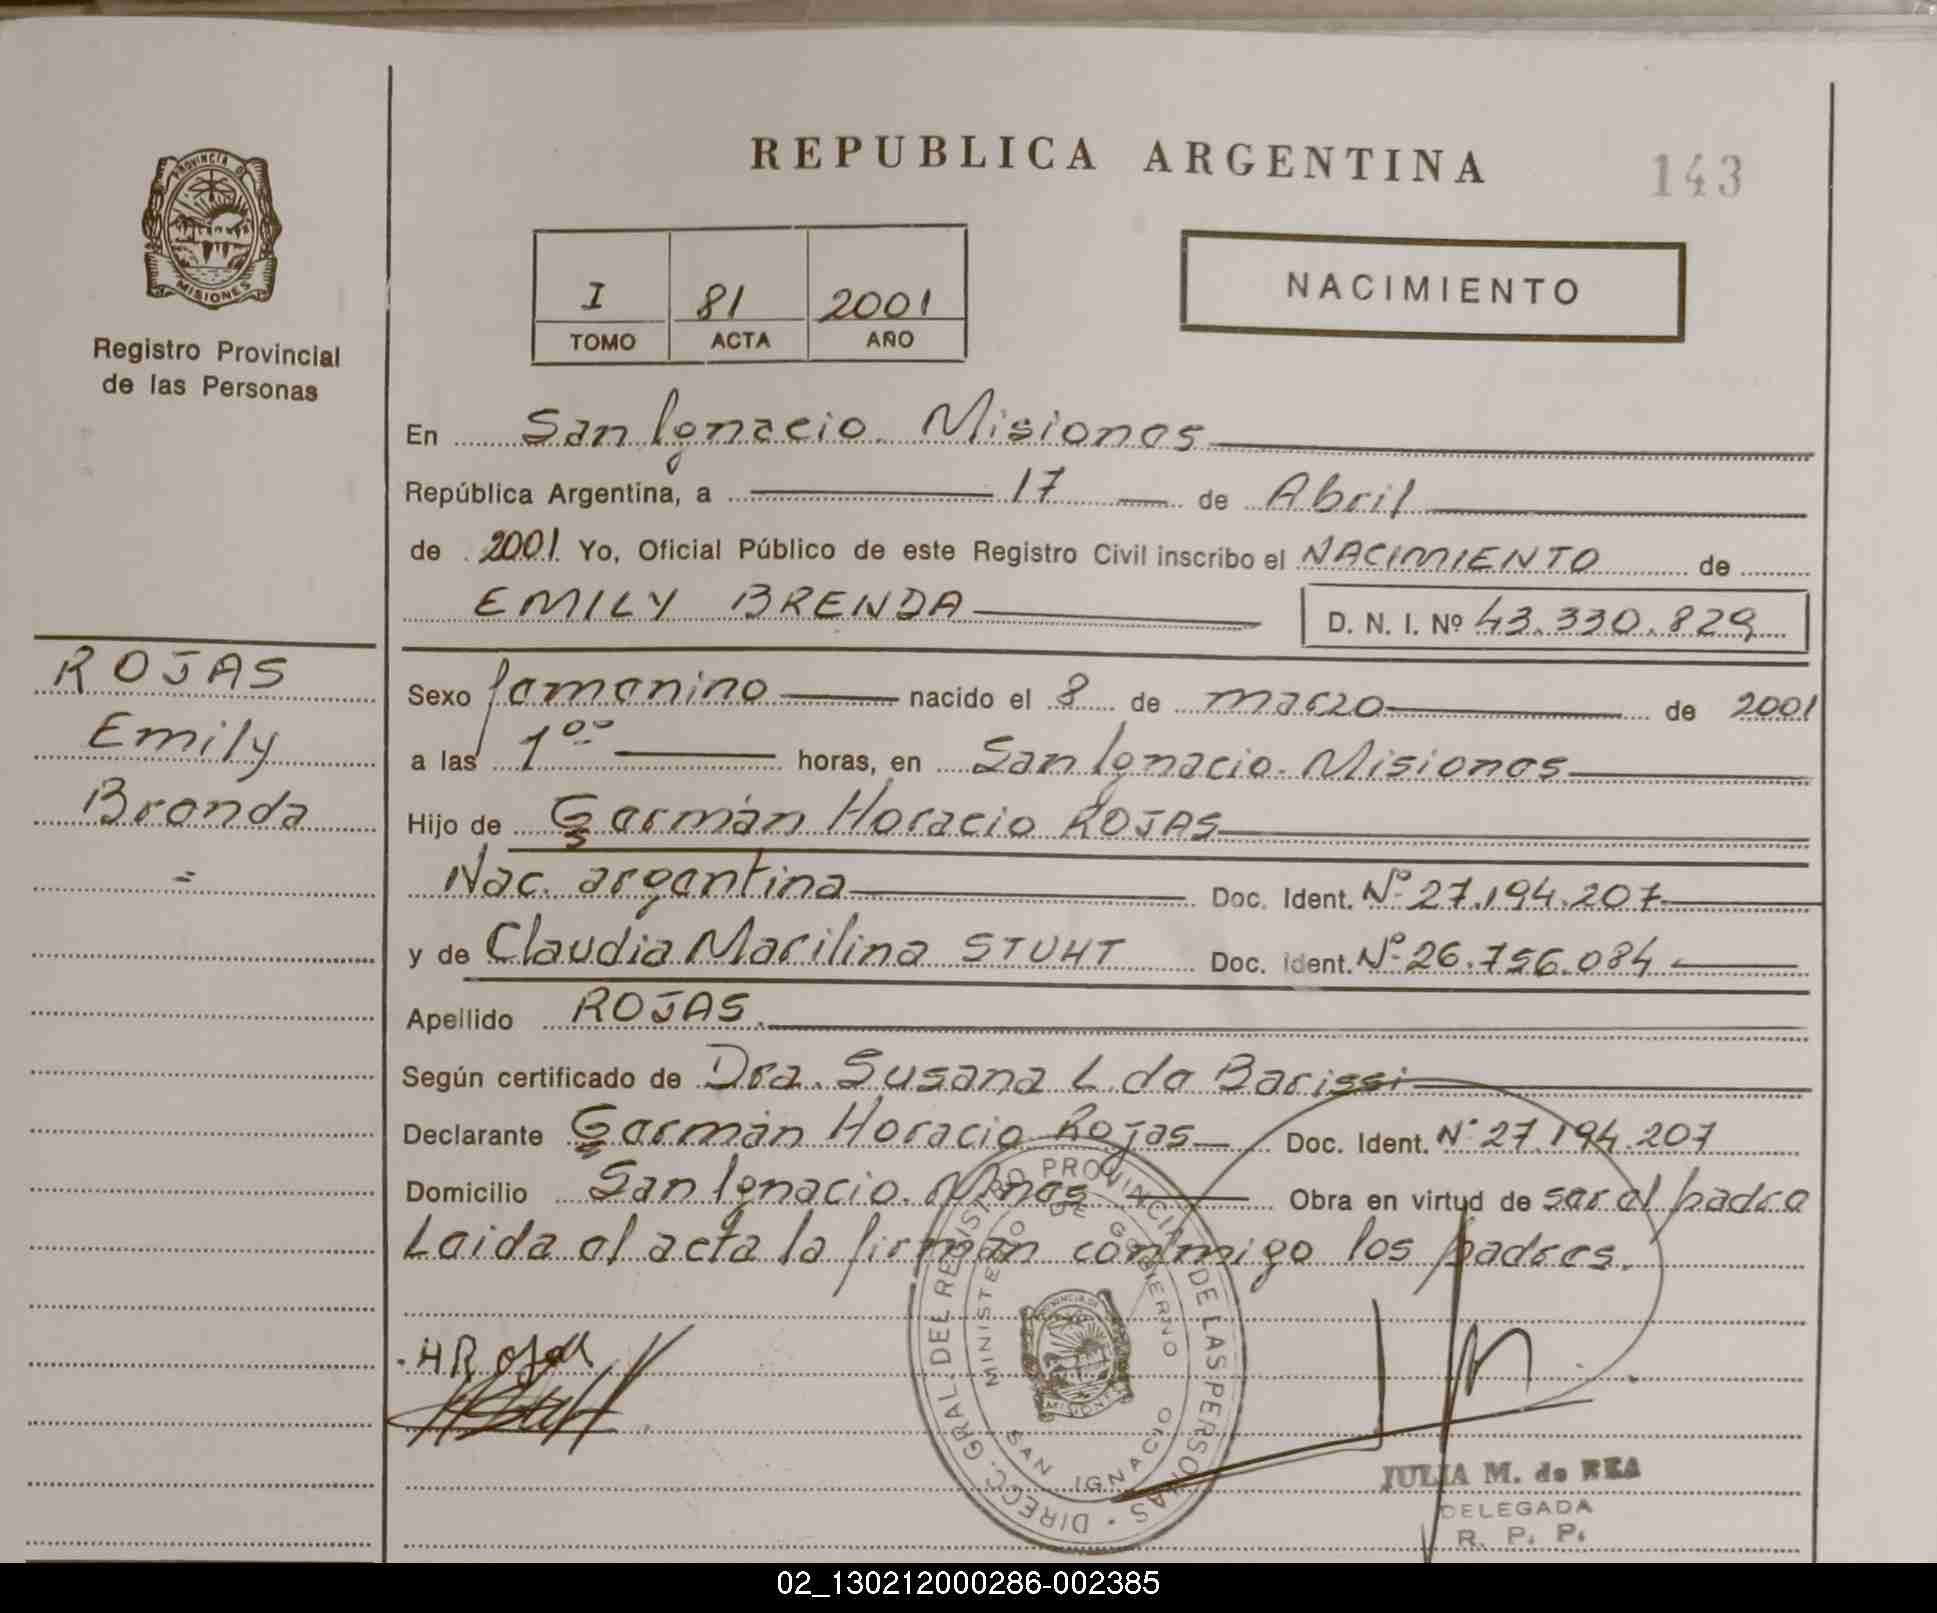 REPUBLICA ARGENTINA
143
PROVINCIA DE
MISIONES
Registro Provincial
de las Personas
I 81 2001
TOMO ACTA AÑO
NACIMIENTO
En San Ignacio. Misiones
República Argentina, a 17 de Abril
de 2001 Yo, Oficial Público de este Registro Civil inscribo el NACIMIENTO de
EMILY BRENDA D. N. I. Nº 43.330.829
ROJAS
Emily
Brenda
=
Sexo femenino nacido el 8 de marzo de 2001
a las 1°° horas, en San Ignacio. Misiones
Hijo de Germán Horacio ROJAS
Nac. argentina Doc. Ident. Nº 27.194.207
y de Claudia Marilina STUHT Doc. Ident. Nº 26.756.084
Apellido ROJAS.
Según certificado de Dra. Susana L. de Barissi
Declarante Germán Horacio Rojas Doc. Ident. Nº 27.194.207
Domicilio San Ignacio. Mnes Obra en virtud de ser el padre
Leida el acta la firman conmigo los padres.
H Rojas
DIRECC. GRAL. DEL REGISTRO PROVINCIAL DE LAS PERSONAS
MINISTERIO DE GOBIERNO
SAN IGNACIO
MISIONES
JULIA M. de REA
DELEGADA
R. P. P.
02_130212000286-002385